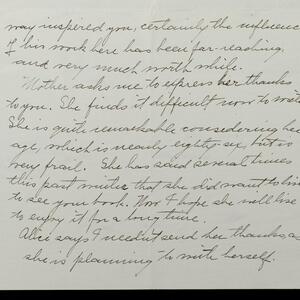 way inspired you, certainly the influence
of his work here has been far-reaching
and very much worth while.
Mother asks me to express her thanks
to you. She finds it difficult now to
She is quite remarkable considering her
age, which is nearly eighty-six, but is
very frail. She has said several times
this past winter that she did want to live
to see your book. Now I hope she will live
to enjoy it for a long time.
Alice says I needn't send her thanks, as
she is planning to write herself.